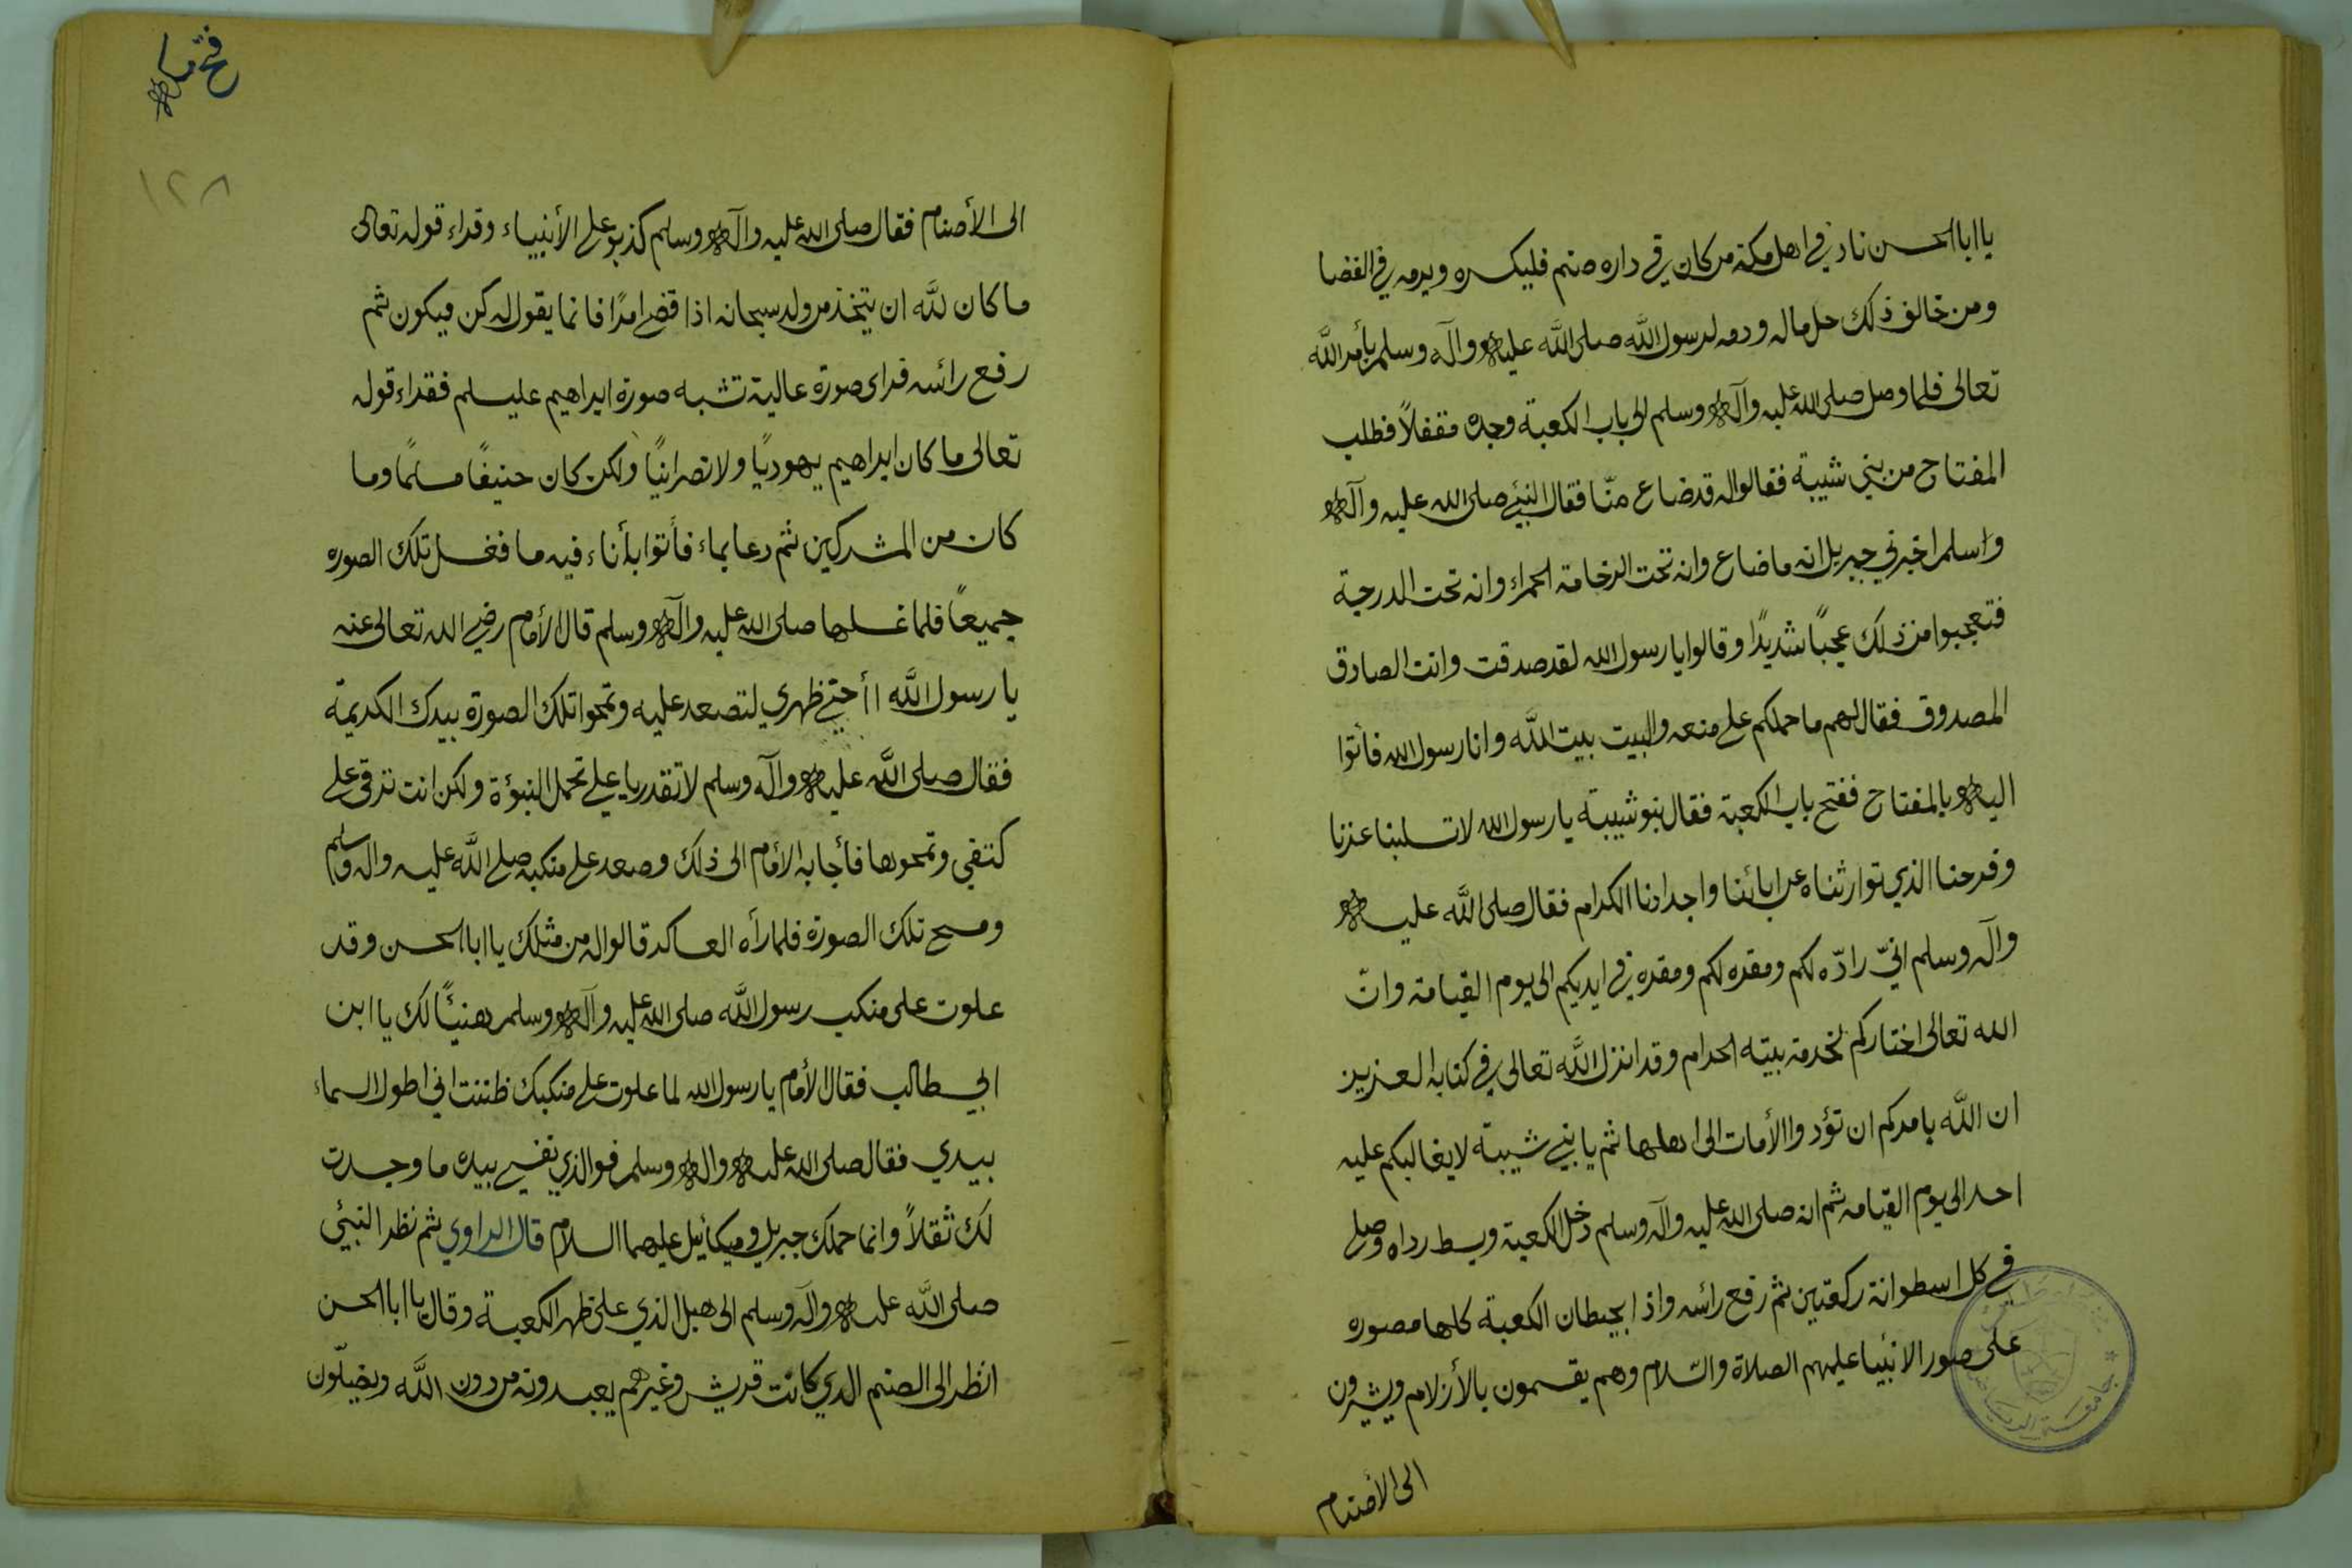 يا ابا الحسن ناد في اهل مكة من كان في داره صنم فليكسره ويرمه في الفضا
ومن خالف ذلك حل ماله ودمه لرسول الله صلى الله عليه وآله وسلم بأمر الله
تعالى فلما وصل صلى الله عليه وآله وسلم الى باب الكعبة وجده مقفلاً فطلب
المفتاح من بني شيبة فقالوا له قد ضاع منّا فقال النبي صلى الله عليه وآله
واسلم اخبرني جبريل انه ما ضاع وانه تحت الرخامة الحمراء وانه تحت الدرجة
فتعجبوا من ذلك عجبًا شديدًا وقالوا يا رسول الله لقد صدقت وانت الصادق
المصدوق فقال لهم ما حملكم على منعه والبيت بيت الله وانا رسول الله فأتوا
اليه بالمفتاح ففتح باب الكعبة فقال بنو شيبة يا رسول الله لا تسلبنا عزنا
وفرحنا الذي توارثناه عن ابائنا واجدادنا الكرام فقال صلى الله عليه
وآله وسلم انيّ رادّه لكم ومقره لكم ومقره في ايديكم الى يوم القيامة وانّ
الله تعالى اختاركم لخدمة بيته الحرام وقد انزل الله تعالى في كتابه العزيز
ان الله يامركم ان تؤدوا الأمات الى اهلها ثم يا بني شيبة لا يغالبكم عليه
احد الى يوم القيامه ثم انه صلى الله عليه وآله وسلم دخل الكعبة وبسط رداه وصلى
في كل اسطوانة ركعتين ثم رفع رائسه واذا بحيطان الكعبة كلها مصوره
على صور الانبيا عليهم الصلاة والسّلام وهم يقسمون بالأزلام ويشيرون
الى الأصنام
جامعة الرياض
فتح
١٢٨
الى الأصنام فقال صلى الله عليه وآله وسلم كذبو على الأنبياء وقراء قوله تعالى
ما كان لله ان يتخذ من ولد سبحانه اذا قضى امرًا فانما يقول له كن فيكون ثم
رفع رائسه فراى صورة عالية تشبه صورة ابراهيم عليسلم فقراء قوله
تعالى ما كان ابراهيم يهوديًا ولا نصرانيًا ولكن كان حنيفًا مسلمًا وما
كان من المشركين ثم دعا بماء فأتوا بأناء فيه ما فغسل تلك الصوره
جميعًا فلما غسلها صلى الله عليه وآله وسلم قال الأمام رضي الله تعالى عنه
يا رسول الله أأحني ظهري لتصعد عليه وتمحوا تلك الصورة بيدك الكريمة
فقال صلى الله عليه وآله وسلم لا تقدر يا علي تحمل النبؤة ولكن انت ترقى على
كتفي وتمحوها فأجابه الأمام الى ذلك وصعد على منكبه صلى الله عليه واله وسلم
ومسح تلك الصورة فلما رأه العساكر قالوا له من مثلك يا ابا الحسن وقد
علوت على منكب رسول الله صلى الله عليه وآله وسلم هنيئًا لك يا ابن
ابي طالب فقال الأمام يا رسول الله لما علوت على منكبك ظننت اني اطول السماء
بيدي فقال صلى الله عليه واله وسلم فوالذي نفسي بيده ما وجدت
لك ثقلاً وانما حملك جبريل وميكائيل عليهما السلام قال الراوي ثم نظر النبئي
صلى الله عليه وآله وسلم الى هبل الذي على ظهر الكعبة وقال يا ابا الحسن
انظر الى الصنم الدي كانت قريش وغيرهم يعبدونه من دون الله ويضلّون